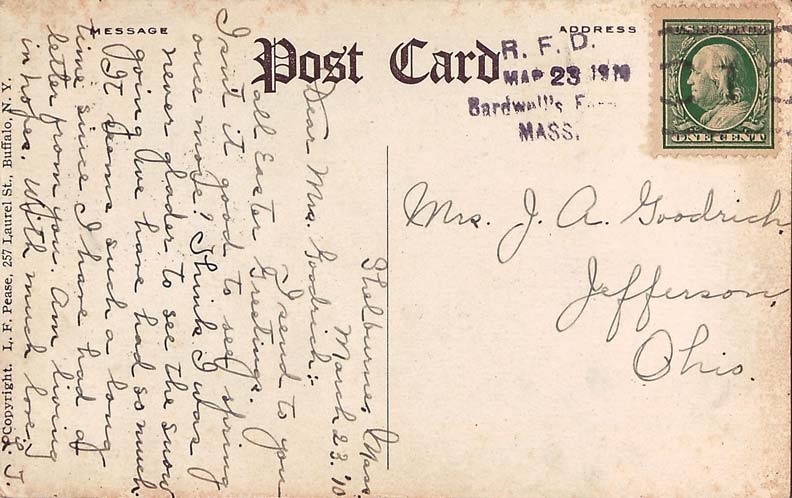 MESSAGE
Post Card
ADDRESS
R. F. D.
MAR 23 1910
Bardwell's F
MASS.
UNITED STATES
ONE CENT
Mrs. J. A. Goodrich,
Jefferson,
Ohio.
Shelburne, Mass.
March 23. '10
Dear Mrs. Goodrich:
I send to you
all Easter Greetings.
Isn't it good to see spring
once more! Think I was
never glader to see the snow
going. We have had so much.
It seems such a long
time since I have had a
letter from you. Am living
in hopes. With much love.
J.
Copyright. L. F. Pease, 257 Laurel St., Buffalo, N. Y.